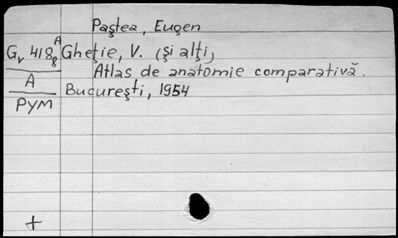 Paştea, Eugen
Gv 418g A Gheţie, V. (şi alţi)
A Atlas de anatomie comparativă.
PYM Bucureşti, 1954
+